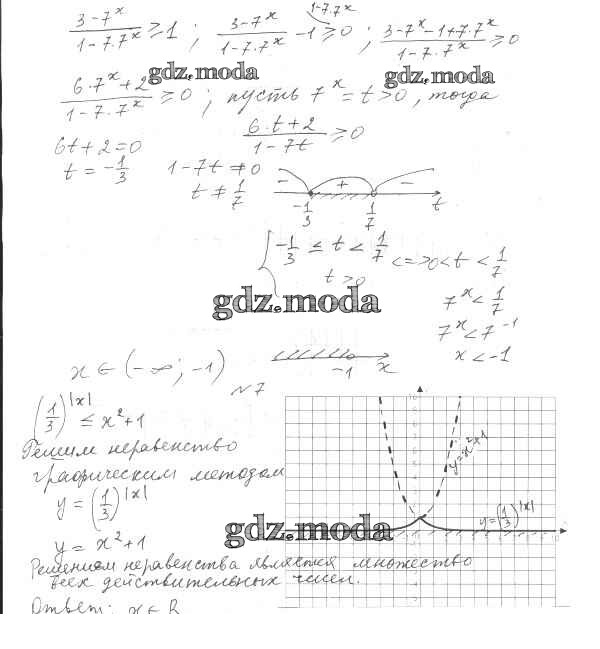 (3-7^x)/(1-7·7^x) ≥ 1 ; (3-7^x)/(1-7·7^x) - 1 ≥ 0 ; (3-7^x-1+7·7^x)/(1-7·7^x) ≥ 0
1-7·7^x
gdz.moda gdz.moda
(6·7^x+2)/(1-7·7^x) ≥ 0 ; пусть 7^x = t > 0, тогда
6t+2=0 (6·t+2)/(1-7t) ≥ 0
t = -1/3 1-7t ≠ 0
t ≠ 1/7
- + -
-1/3 1/7 t
{ -1/3 ≤ t < 1/7
t > 0 <=> 0 < t < 1/7
gdz.moda
7^x < 1/7
7^x < 7^-1
x < -1
x ∈ (-∞; -1) -1 x
№7
(1/3)^|x| ≤ x²+1
Решим неравенство
графическим методом
y = (1/3)^|x|
y = x²+1
y=x²+1
y=(1/3)^|x|
gdz.moda
Решением неравенства является множество
всех действительных чисел.
Ответ: x ∈ R